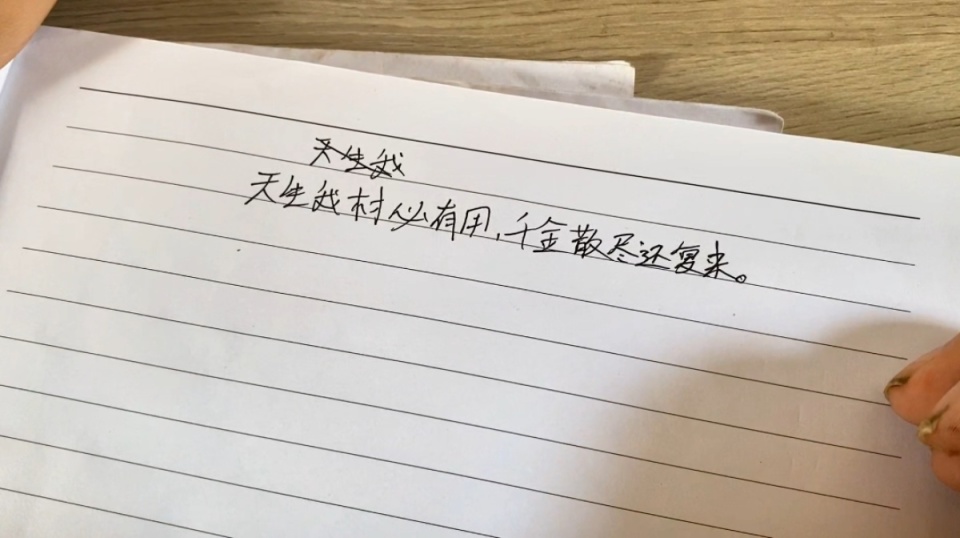 天生我
天生我村必有用,千金散尽还复来。